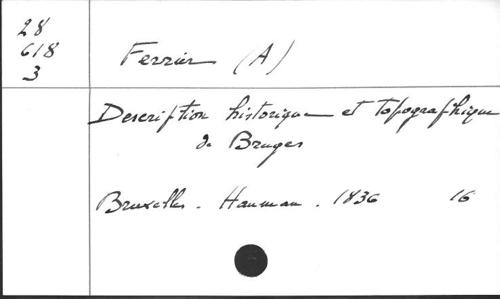 28
618
3
Ferrier (A)
Description historique et topographique
de Bruges
Bruxelles. Hauman. 1836 16